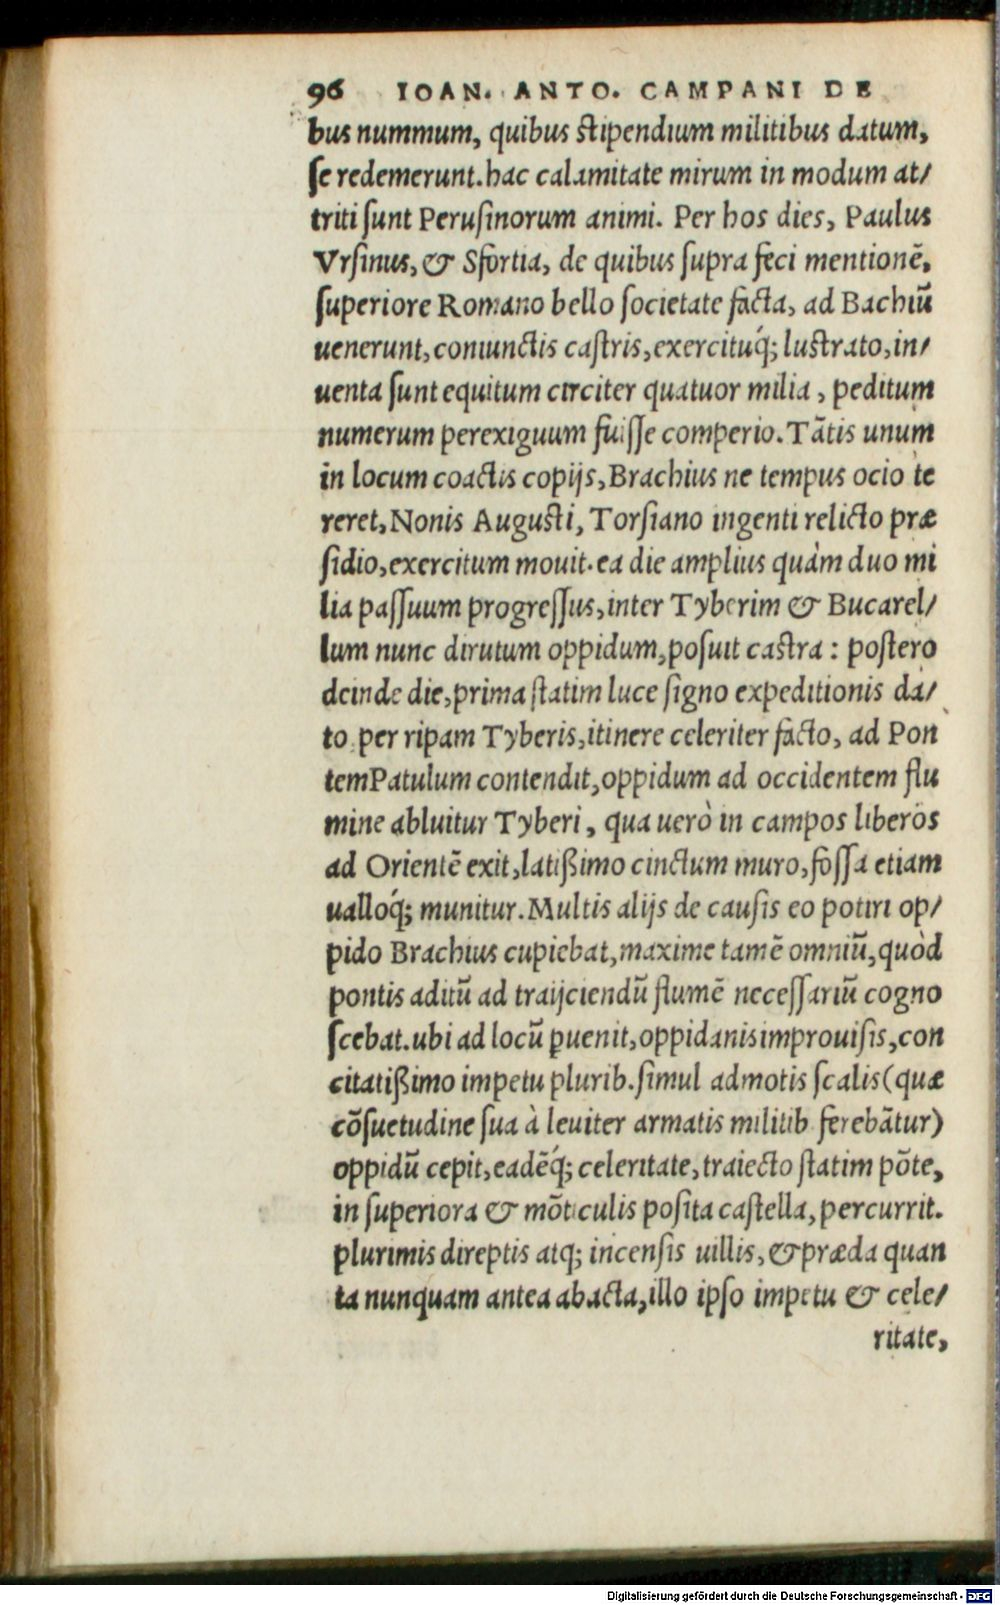 96 IOAN. ANTO. CAMPANI DE
bus nummum, quibus stipendium militibus datum,
se redemerunt. hac calamitate mirum in modum at/
triti sunt Perusinorum animi. Per hos dies, Paulus
Vrsinus, & Sfortia, de quibus supra feci mentionē,
superiore Romano bello societate facta, ad Bachiū
uenerunt, coniunctis castris, exercituq́; lustrato, in/
uenta sunt equitum circiter quatuor milia, peditum
numerum perexiguum fuisse comperio. Tātis unum
in locum coactis copijs, Brachius ne tempus ocio te
reret, Nonis Augusti, Torsiano ingenti relicto præ
sidio, exercitum mouit. ea die amplius quàm duo mi
lia passuum progressus, inter Tyberim & Bucarel/
lum nunc dirutum oppidum, posuit castra: postero
deinde die, prima statim luce signo expeditionis da/
to per ripam Tyberis, itinere celeriter facto, ad Pon
temPatulum contendit, oppidum ad occidentem flu
mine abluitur Tyberi, qua uerò in campos liberos
ad Orientē exit, latißimo cinctum muro, fossa etiam
ualloq́; munitur. Multis alijs de causis eo potiri op/
pido Brachius cupiebat, maxime tamē omniū, quòd
pontis aditū ad traijciendū flumē necessariū cogno
scebat. ubi ad locū ꝑuenit, oppidanis improuisis, con
citatißimo impetu plurib. simul admotis scalis (quæ
cōsuetudine sua à leuiter armatis militib ferebātur)
oppidū cepit, eadēq́; celeritate, traiecto statim pōte,
in superiora & mōticulis posita castella, percurrit.
plurimis direptis atq; incensis uillis, & præda quan
ta nunquam antea abacta, illo ipso impetu & cele/
ritate,
Digitalisierung gefördert durch die Deutsche Forschungsgemeinschaft - DFG